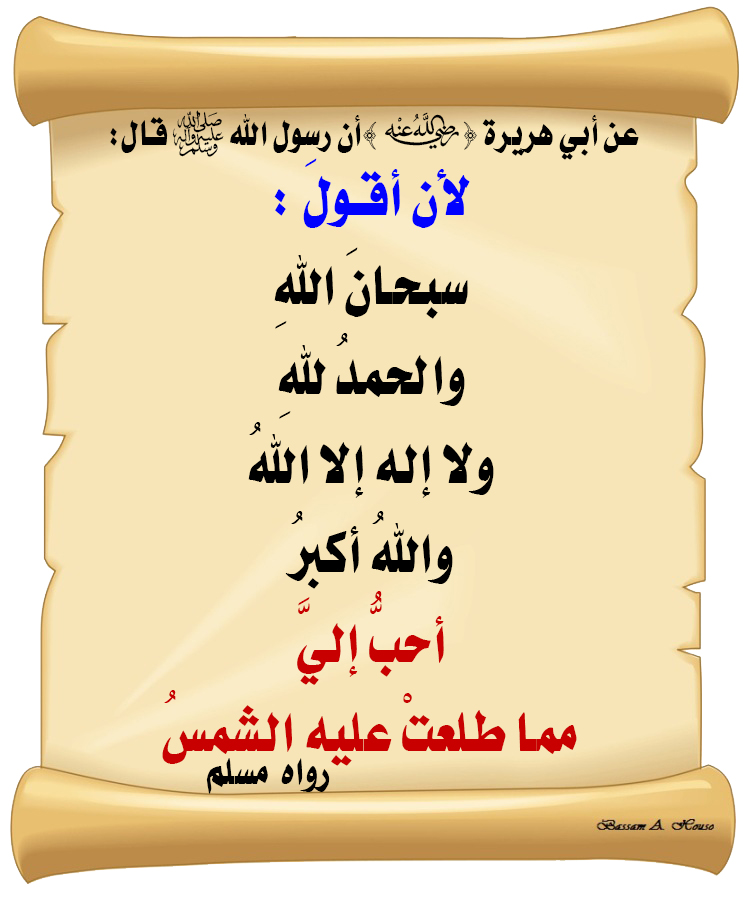 عن أبي هريرة ﴿رضي الله عنه﴾ أن رسول الله ﷺ قال:
لأن أقولَ :
سبحانَ اللهِ
والحمدُ للهِ
ولا إله إلا اللهُ
واللهُ أكبرُ
أحبُّ إليَّ
مما طلعتْ عليه الشمسُ
رواه مسلم
Bassam A. Houso